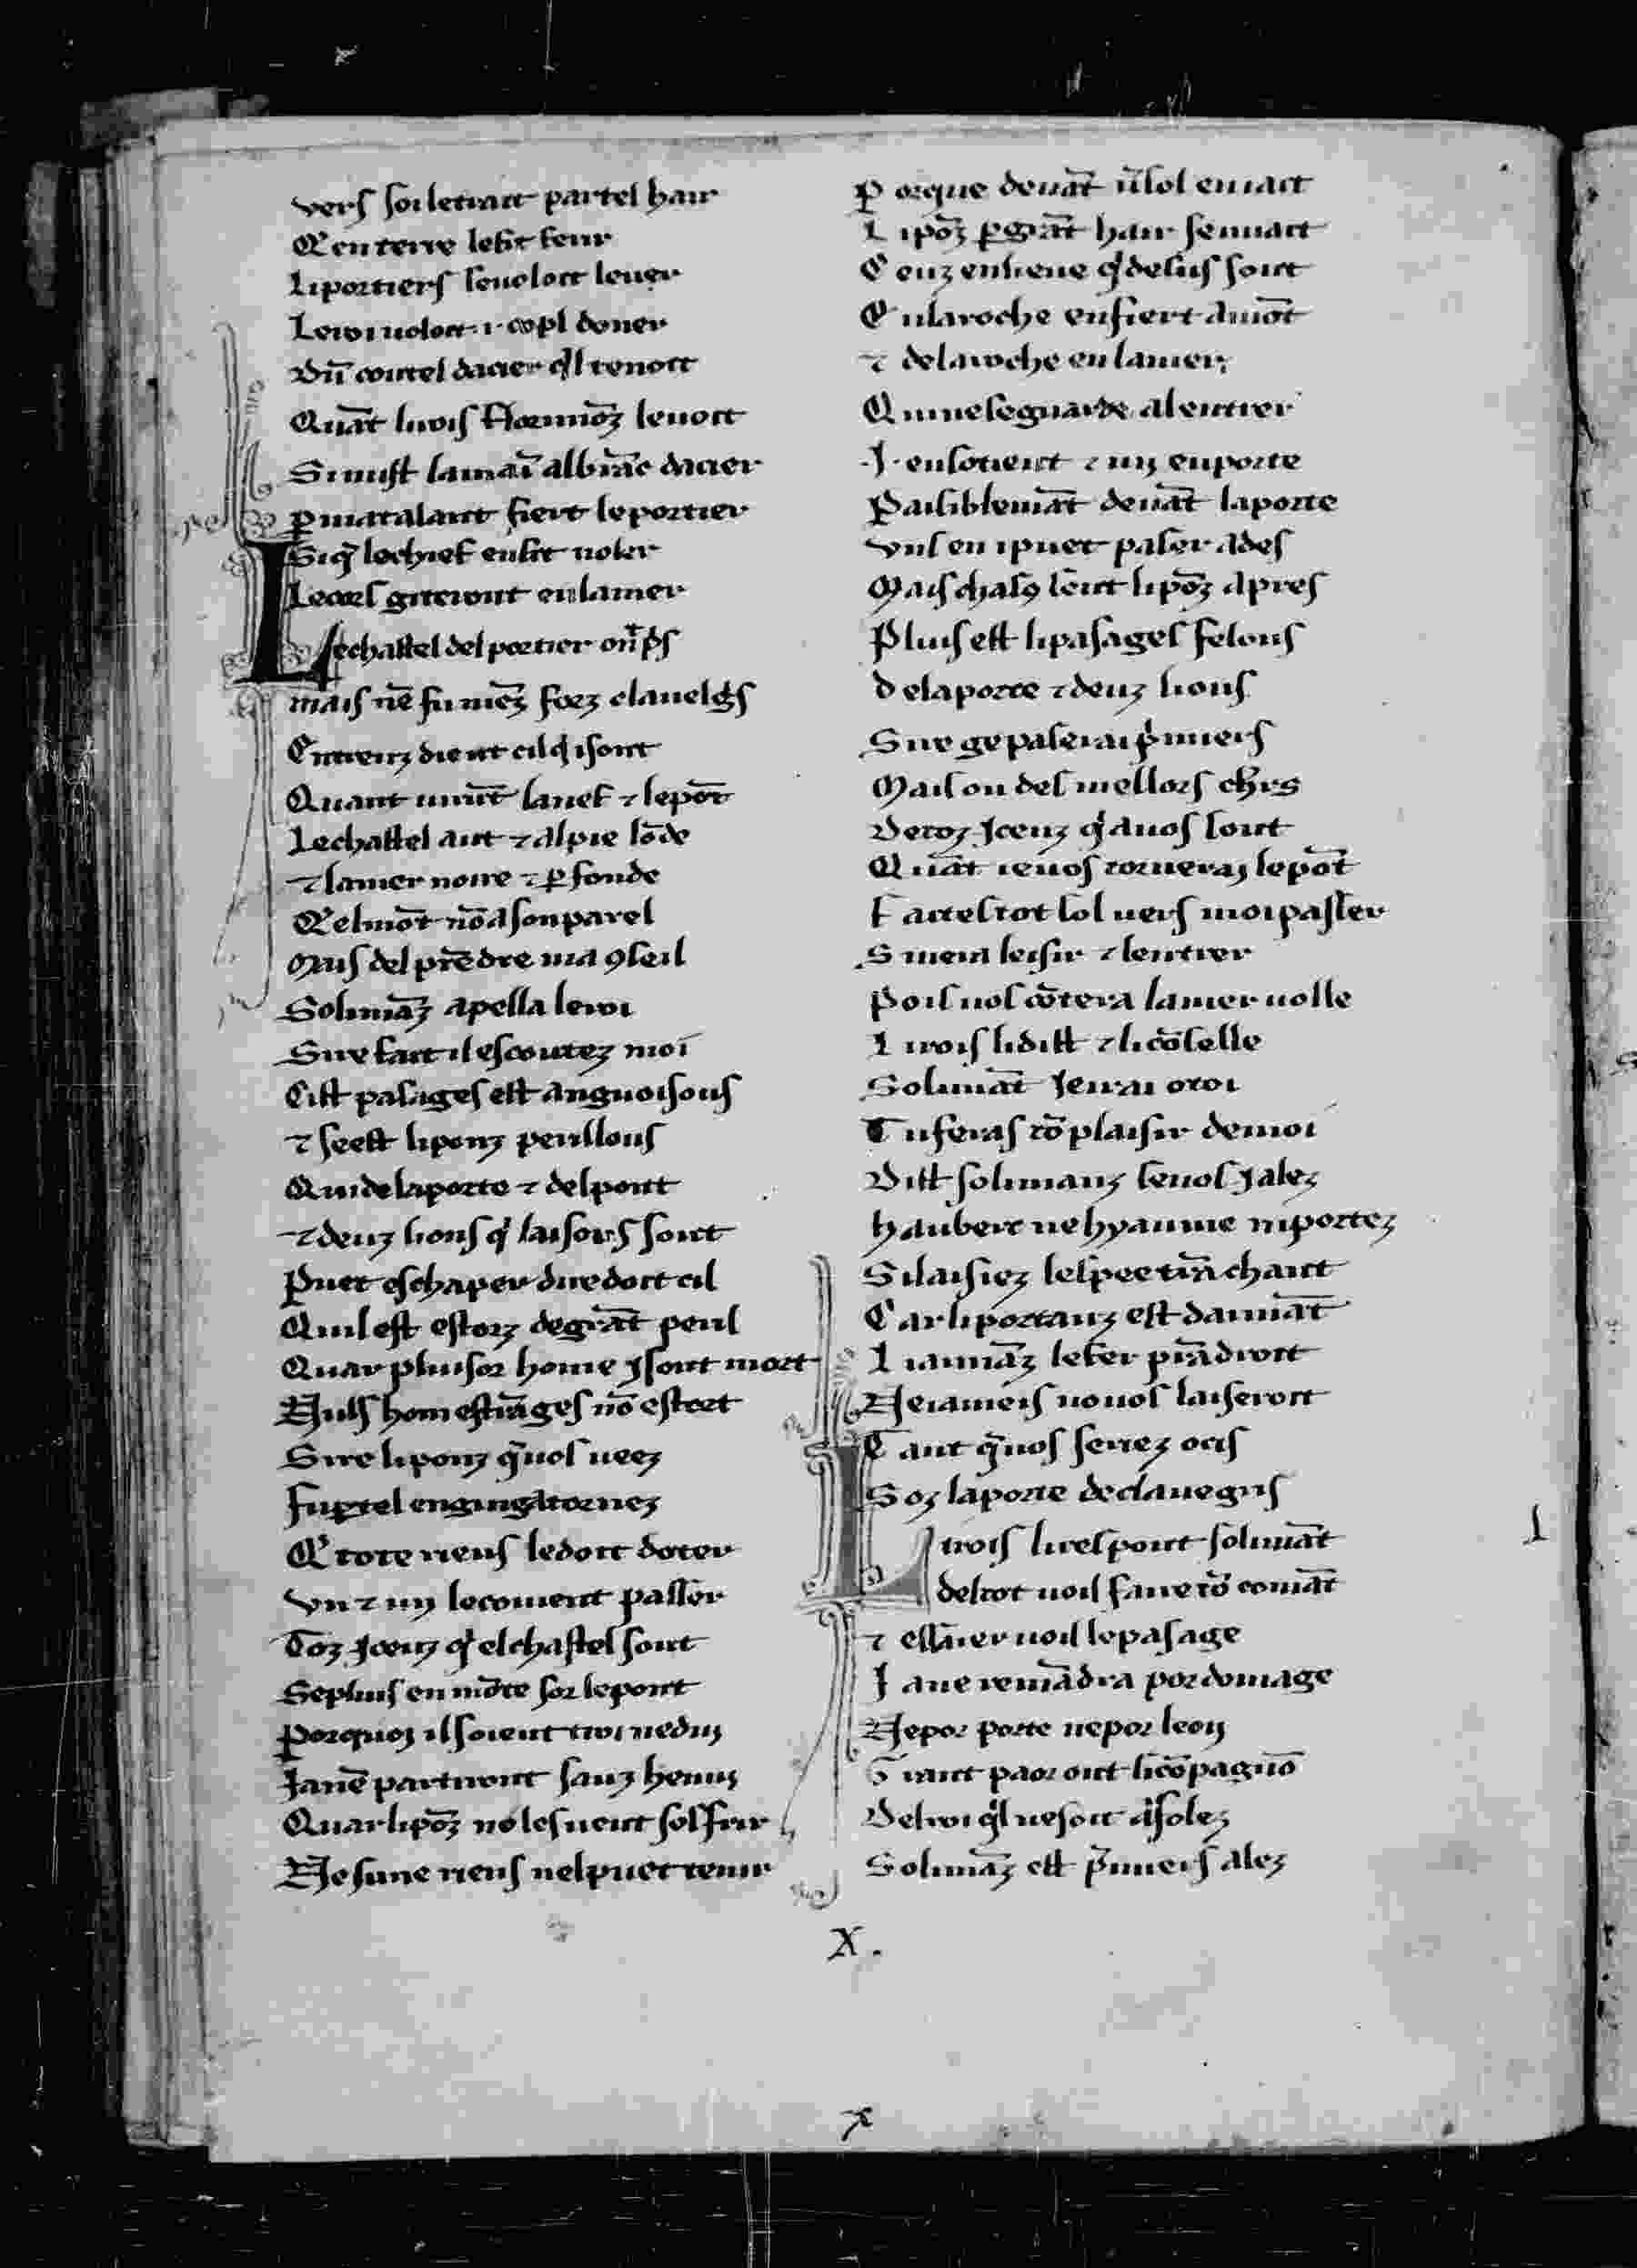 vers soi letrait par tel hair
Q en terre lefit feur
Li portiers seuoloit leuer
Le roi uoloit .i. copl doner
Dū coutel dacier q̓l tenoit
Quāt li rois florimāz leuoit
Si mist lamaī al brāc dacier
ꝑ matalant fiert le portier
Si q̄ lechief enfit uoler
Le cors giterent en lamer
Le chastel del portier onͭ pͥs
mais nē fu mēz forz cla uelgͥs
Entrenz dient cil q̓ i sont
Quant uirēt lanef ⁊ le pōt
Le chastel ant ⁊ alpie lōde
⁊ lamer noire ⁊ ꝑfonde
Q elmōt nō a son parel
Mais del prēdre ma ꝯseil
Solimāz apella le roi
Sire fait il escoutez moi
Cist pasages est anguoisous
⁊ seest li ponz perillous
Qui de la porte ⁊ del pont
⁊ deuz lions q̓ laisors sont
Puet eschaper dire doit cil
Quil est estorz de grāt peril
Quar plusor home i sont mort
Nuls hom estrāges nō estort
Sire li ponz q̄ uos ueez
Fu ꝑ tel enging atornez
Q tote riens le doit doter
Vn ⁊ un lecouient passer
Toz iceuz q̓ el chastel sont
Se plus en mōte sor le pont
Por quoi il soient troi ne dui
Ia nē partiront sanz henui
Quar li pōz nō les uent sosfrir
Ne sune riens nel puet tenir
P or que deuāt ū sol en iait
L i pōz ꝑ grāt hair senuait
C euz enlieue q̓ desus sont
E n la roche en fiert amōt
⁊ de la roche en la mer
Q ui ne se guarde al entrer
.I. en sotient ⁊ un en porte
Paisiblemāt deuāt la porte
Vns en i puet paser ades
Mais chasꝯ sent li pōz apres
Plus est li pasages felons
D e la porte ⁊ deuz lions
Sire ge paserai pͥmiers
Mais ou des mellors chͬrs
De toz iceuz q̓ a uos sont
Quāt ie uos tornerai le pōt
F aites tot sol uers moi passer
S i mein leisir ⁊ lentrer
Pois uos cōtera la mer uolle
L i rois li dist ⁊ li cōselle
Solimāt ie irai o toi
T u feras tō plaisir de moi
Dist solimanz se uos i alez
Hauberc ne hyaume ni portez
Si laisiez lespee trāchant
C ar li portanz est da imāt
L i aimāz le fer prādroit
Ne iameis no uos laiseroit
T ant q̄ uos seriez ocis
Soz la porte declauegris
L i rois li respont solimāt
del tot uoil faire tō comāt
⁊ essaier uoil le pasage
I a ne remādra por domage
Ne por porte ne por leon
G rant paor ont li cōpagnō
Del roi q̓l ne soit a folez
Solimāz est pͥmiers alez
X.